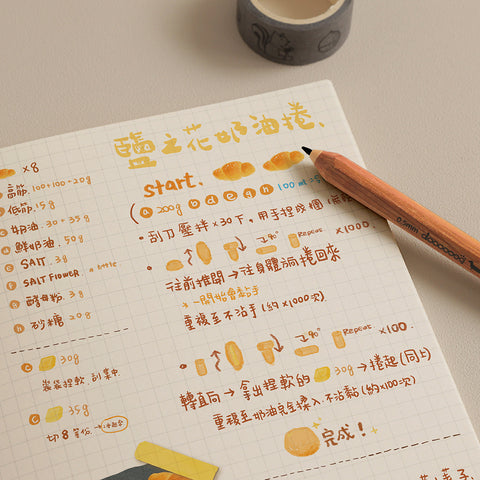 鹽之花奶油捲、
×8
高筋.100+100+20g
低筋.15g
奶油.30+35g
鮮奶油.50g
SALT.3g
SALT FLOWER
酵母粉.3g
砂糖 20g
30g
裝袋捏軟,刮集中
35g
切8等份.
start、
(a 200g b d e g h 100 ml
刮刀壓拌×30下,用手捏成團
90° Repeat ×1000.
往前推開→往身體方向捲回來
一開始會黏手
重複至不沾手(約×1000次)
90° Repeat ×100.
轉直向→拿出捏軟的 30g→捲起(同上)
重複至奶油完全揉入.不沾黏(約×100次)
完成!
0.7mm